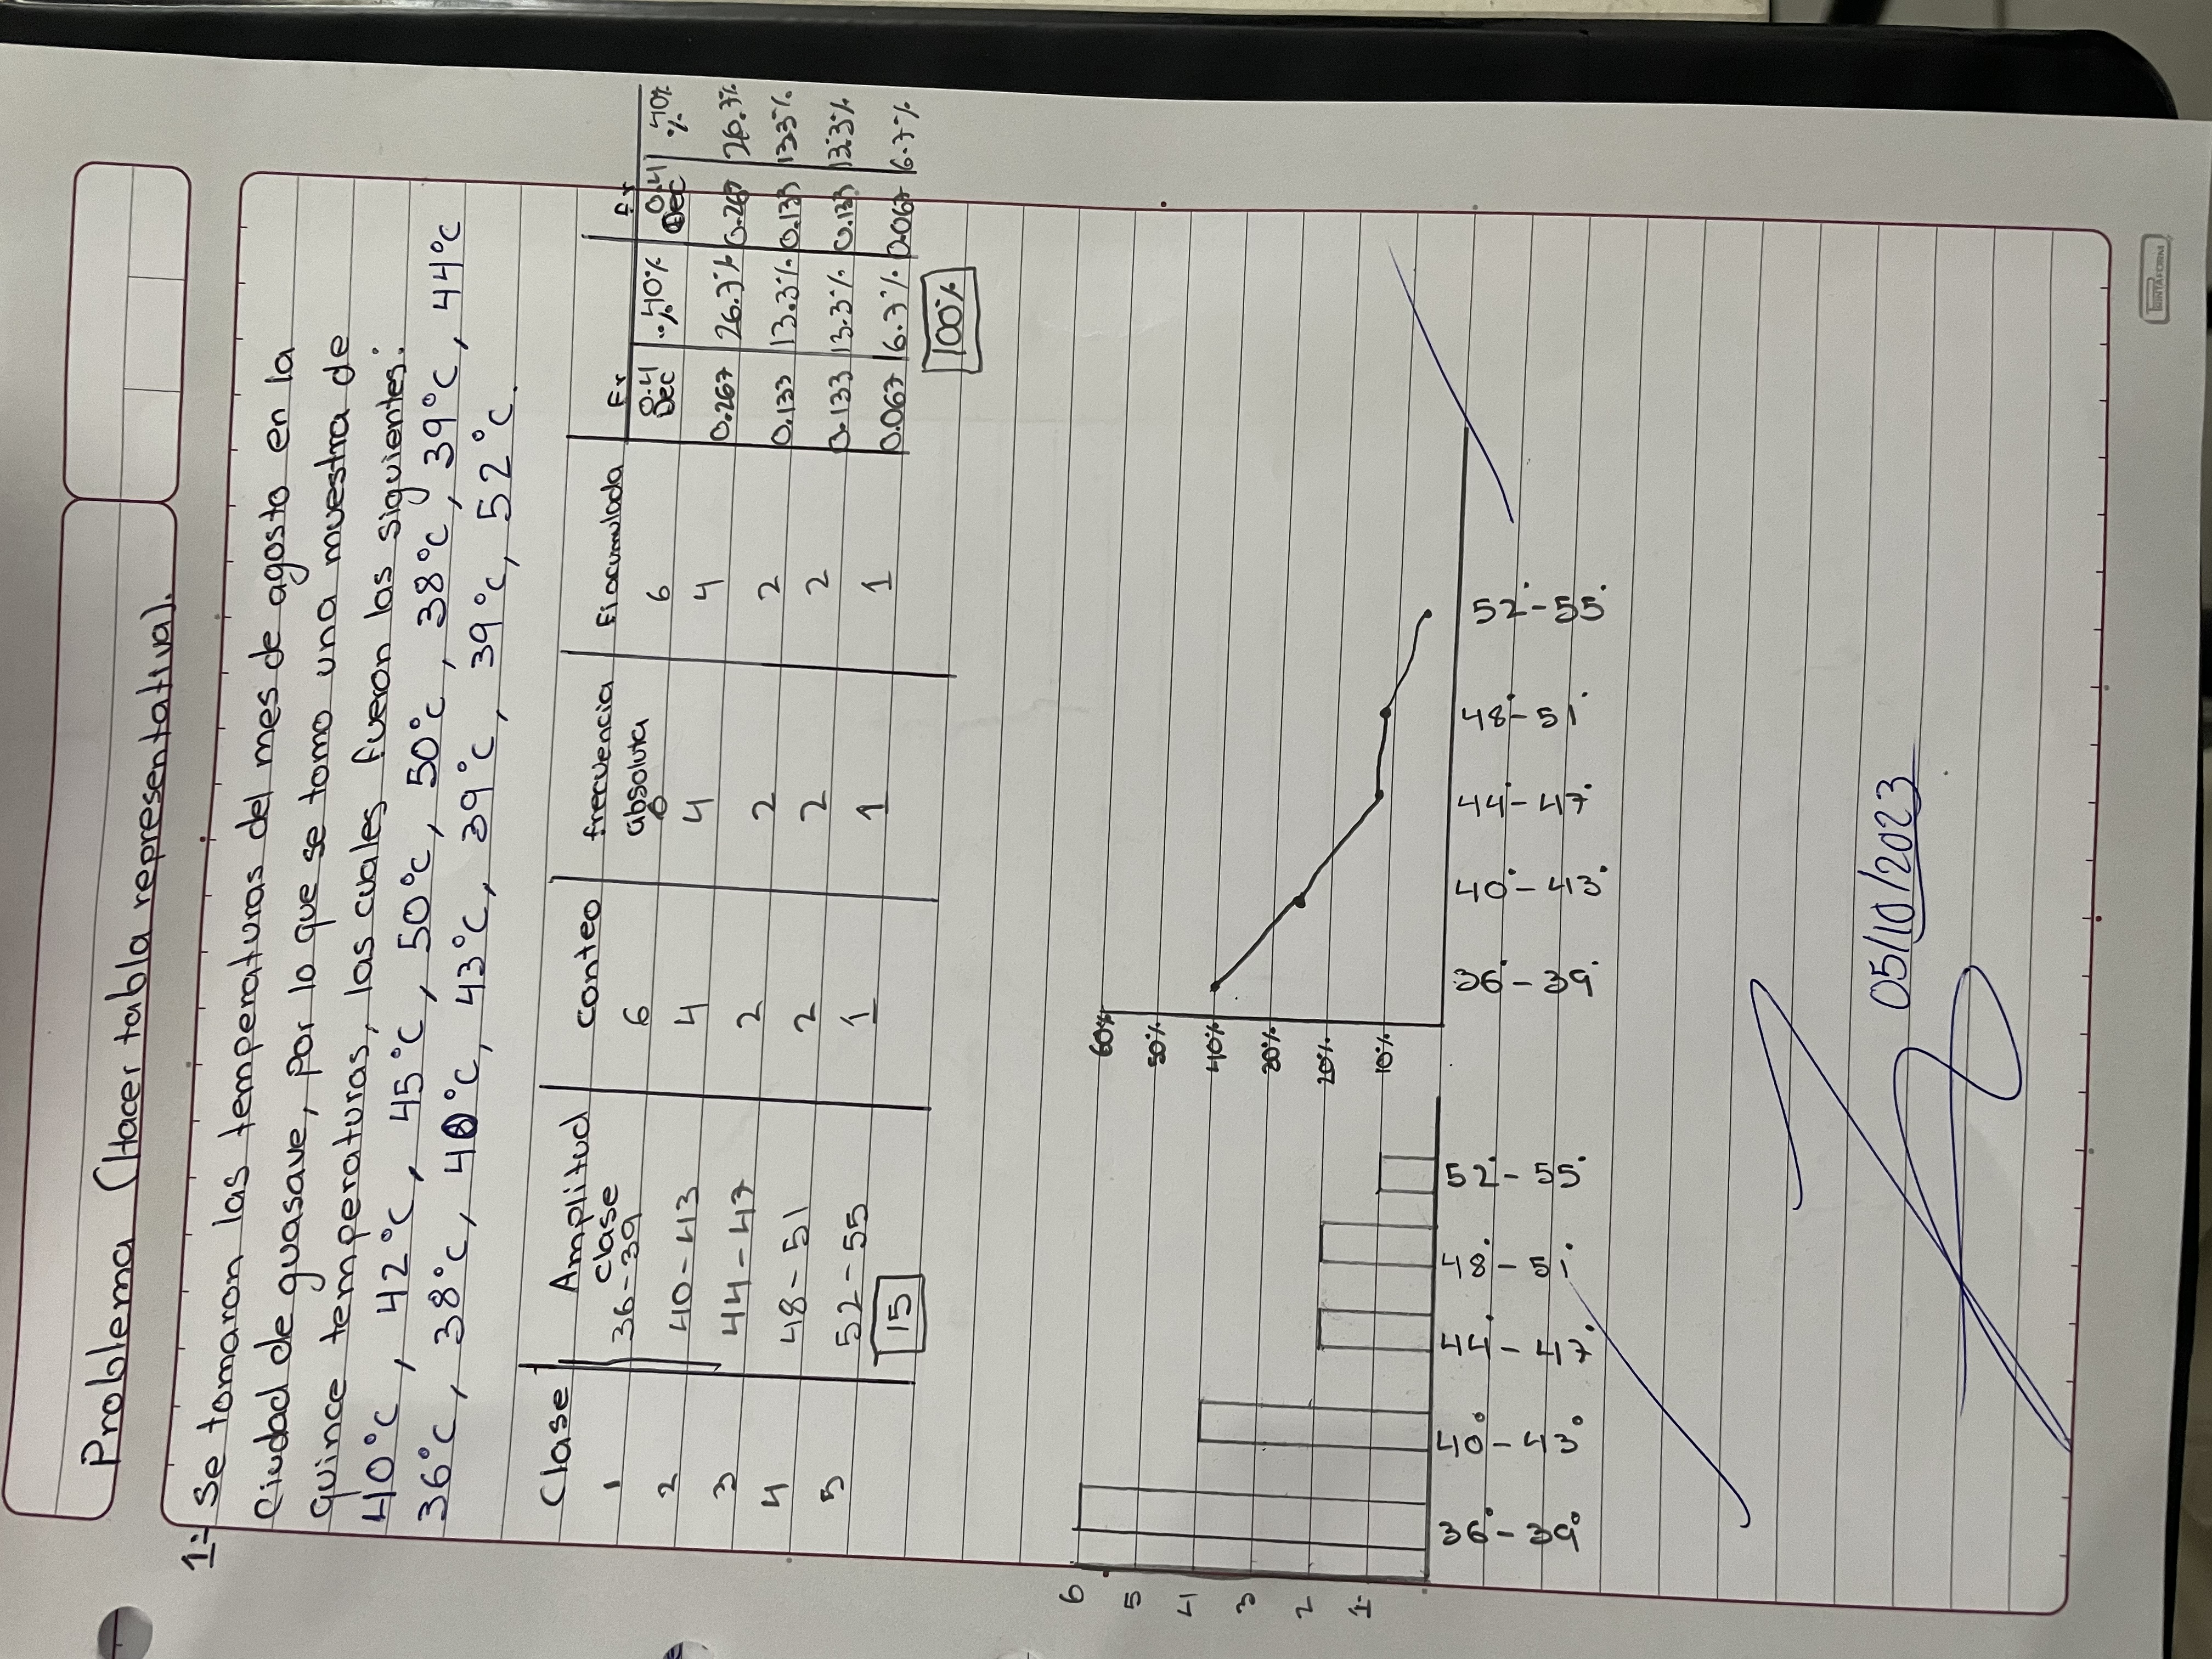 Problema (Hacer tabla representativa).
1.- Se tomaron las temperaturas del mes de agosto en la
Ciudad de guasave, por lo que se tomo una muestra de
quince temperaturas, las cuales fueron las siguientes:
40°C, 42°C, 45°C, 50°C, 50°C, 38°C, 39°C, 44°C
36°C, 38°C, 40°C, 43°C, 39°C, 39°C, 52°C.
Clase Amplitud clase Conteo frecuencia absoluta Fi acumulada Fr Fr
1 36-39 6 6 6 0.4 Dec 40% % 0.4 Dec 40% %
2 40-43 4 4 4 0.267 26.7% 0.267 26.7%
3 44-47 2 2 2 0.133 13.3% 0.133 13.3%
4 48-51 2 2 2 0.133 13.3% 0.133 13.3%
5 52-55 1 1 1 0.067 6.7% 0.067 6.7%
15 100%
6
5
4
3
2
1
36°-39° 40°-43° 44°-47° 48°-51° 52°-55°
60%
50%
40%
30%
20%
10%
36°-39° 40°-43° 44°-47° 48°-51° 52°-55°
05/10/2023
PRINTAFORM